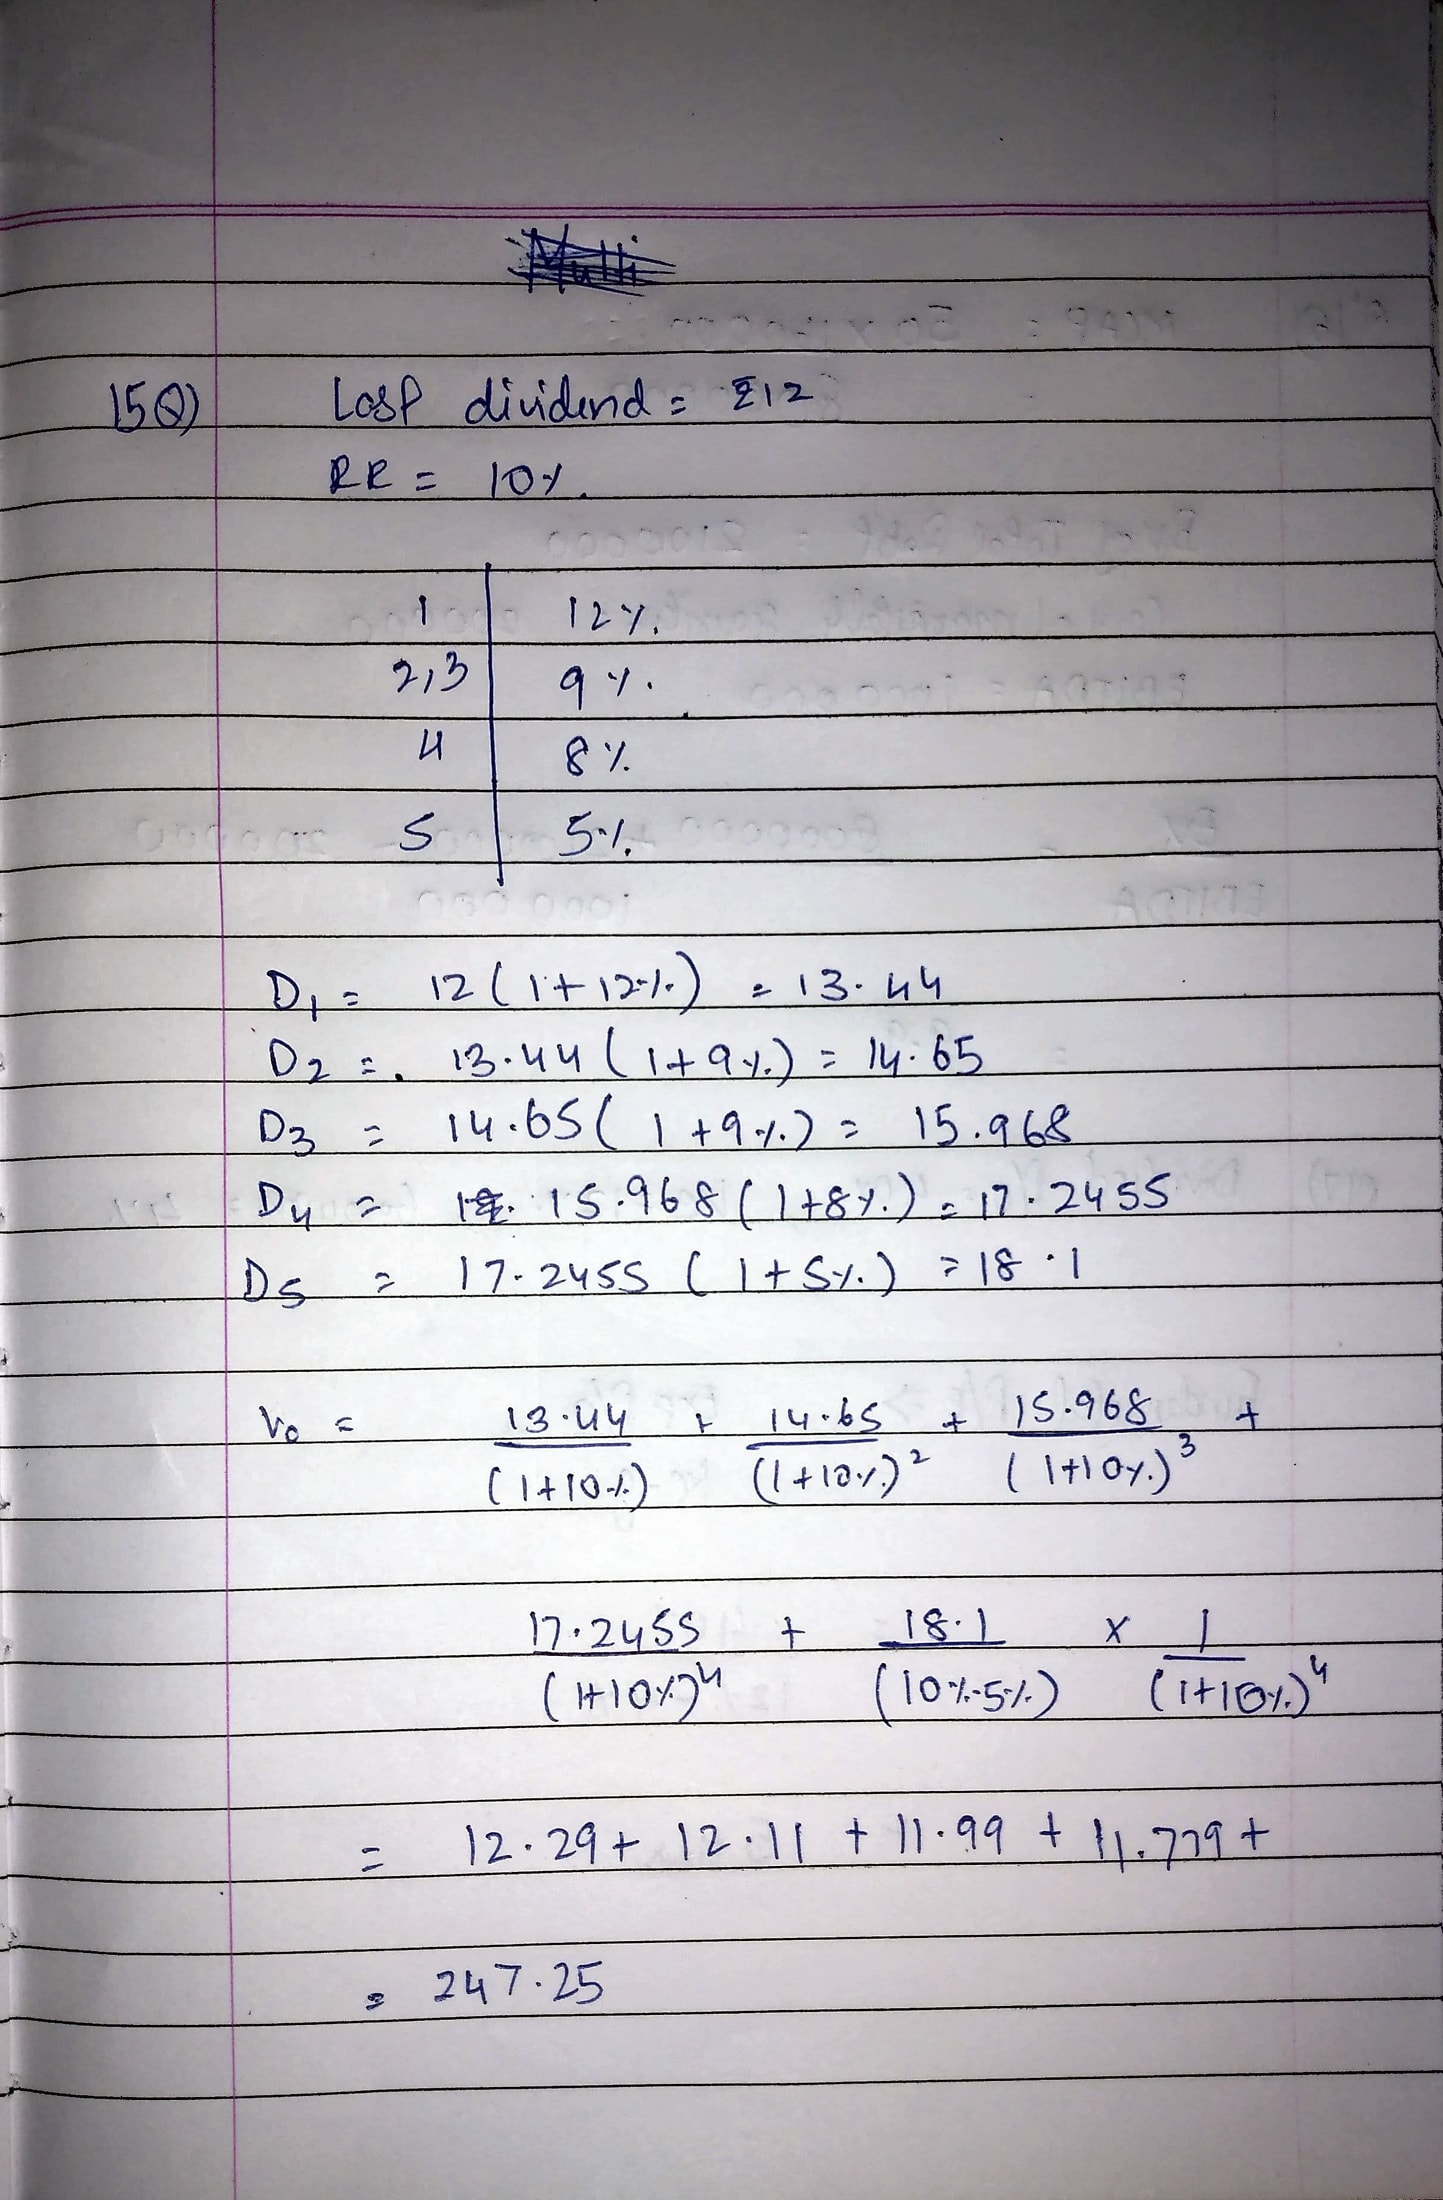 15Q) Last dividend = ₹12
RR = 10%.
1 12%.
2,3 9%.
4 8%.
5 5%.
D1 = 12 (1+12%) = 13.44
D2 = 13.44 (1+9%) = 14.65
D3 = 14.65 (1+9%) = 15.968
D4 = 15.968 (1+8%) = 17.2455
D5 = 17.2455 (1+5%) = 18.1
V0 = 13.44 + 14.65 + 15.968 +
(1+10%) (1+10%)² (1+10%)³
17.2455 + 18.1 x 1
(1+10%)⁴ (10%-5%) (1+10%)⁴
= 12.29 + 12.11 + 11.99 + 11.779 +
= 247.25